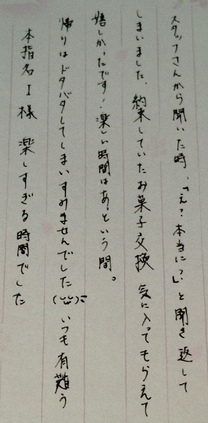 スタッフさんから聞いた時、「え?本当に?」と聞き返して
しまいました。約束していたお菓子交換 気に入ってもらえて
嬉しかったです!楽しい時間はあっという間。
帰りはドタバタしてしまいすみませんでした(^^;) いつも有難う
本指名I様 楽しすぎる時間でした